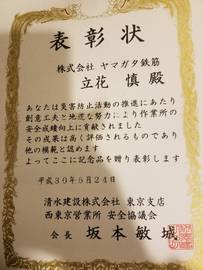 表彰状
株式会社 ヤマガタ鉄筋
立花 慎 殿
あなたは災害防止活動の推進にあたり
創意工夫と地道な努力により作業所の
安全成績向上に貢献されました
その成果は高く評価されるものであり
他の模範と認めます
よってここに記念品を贈り表彰します
平成30年6月24日
清水建設株式会社 東京支店
西東京営業所 安全協議会
会長 坂本敏城